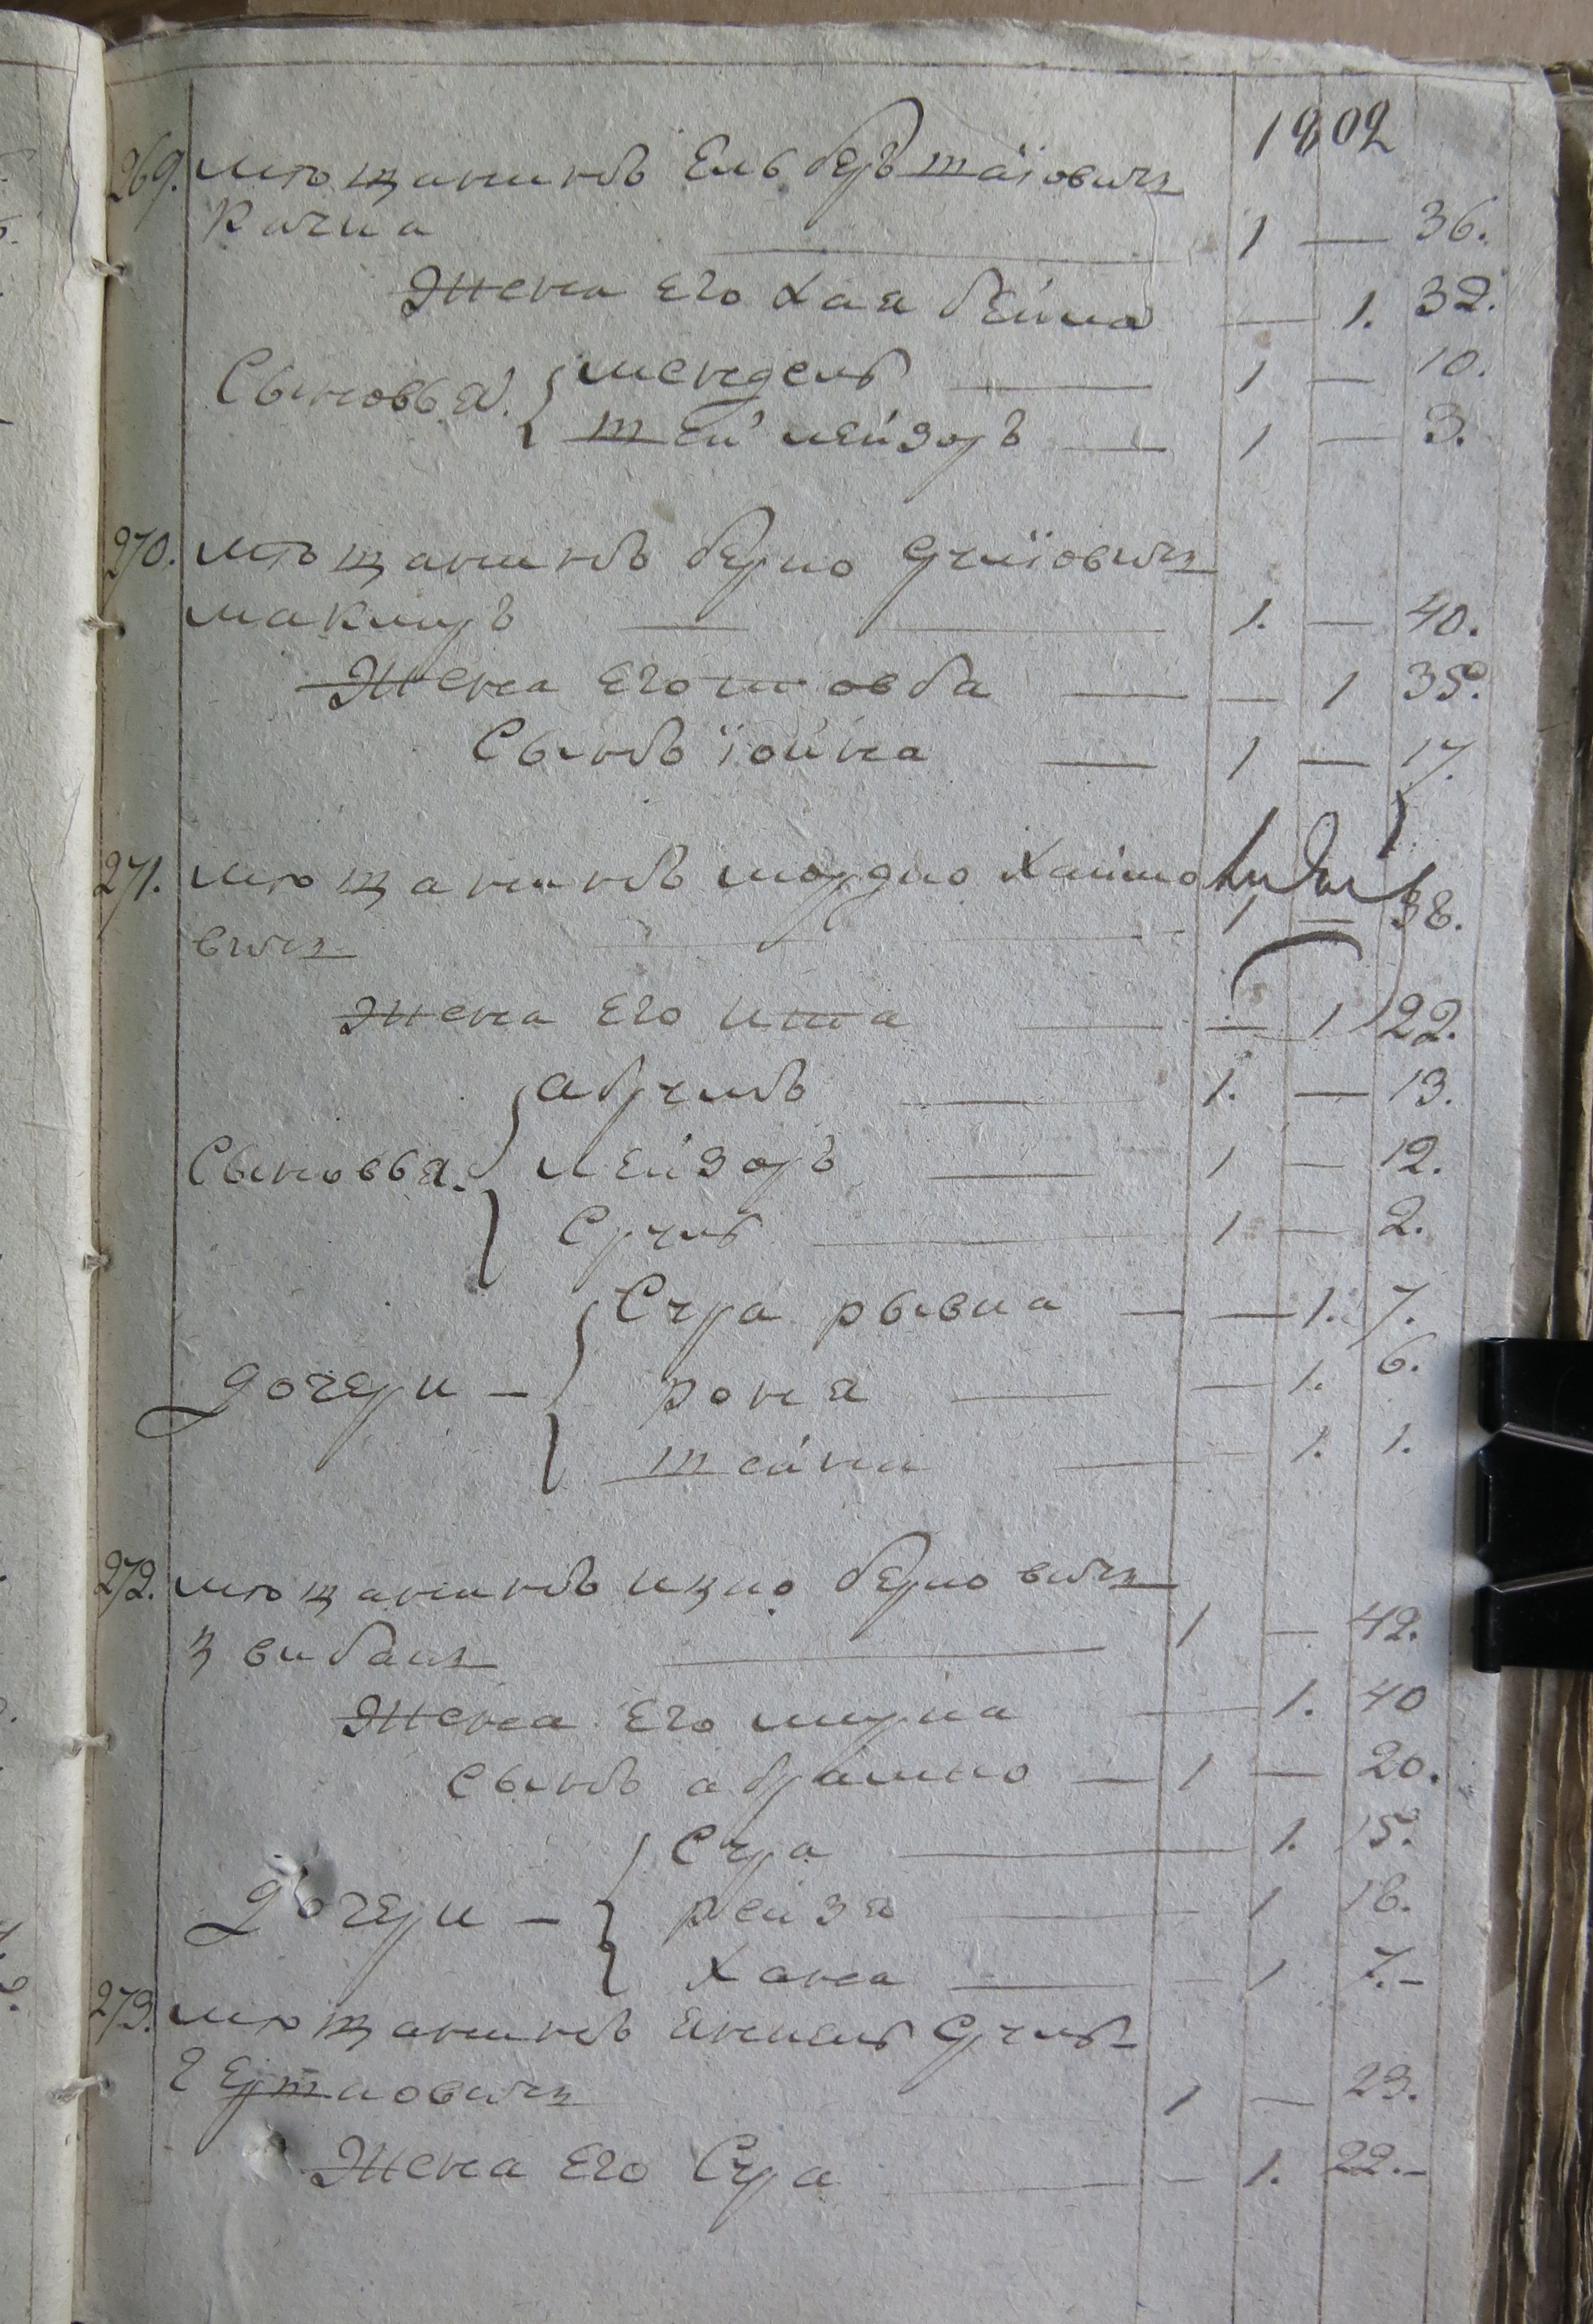 1802
269. мѣщанинъ Ель беръ шаіовичъ
Качка 1 — 36.
Жена его Хая бейла — 1. 32.
Сыновья. мендель 1 — 10.
шей лейзоръ 1 — 3.
270. мѣщанинъ берко Срулiовичъ
маклеръ 1. — 40.
Жена его шовба — 1 35.
Сынъ іойна 1 — 17.
271. мѣщанинъ мордко Хаимо
вичъ 1 — 38.
Жена его ита — 1 22.
абрумъ 1. — 13.
Сыновья. лейзоръ 1 — 12.
Сруль 1 — 2.
Сура рывка — 1. 7.
дочери — роня — 1. 6.
шейна — 1. 1.
272. мѣщанинъ ицко берковичъ
1 — 42.
Жена его мирка — 1. 40
сынъ абрамко — 1 — 20.
Сура — 1. 15.
дочери — рейзя — 1 18.
Хана — 1 7.—
273. мѣщанинъ янкель Сруль
Гершковичъ 1 — 23.
Жена его Сура — 1. 22.—